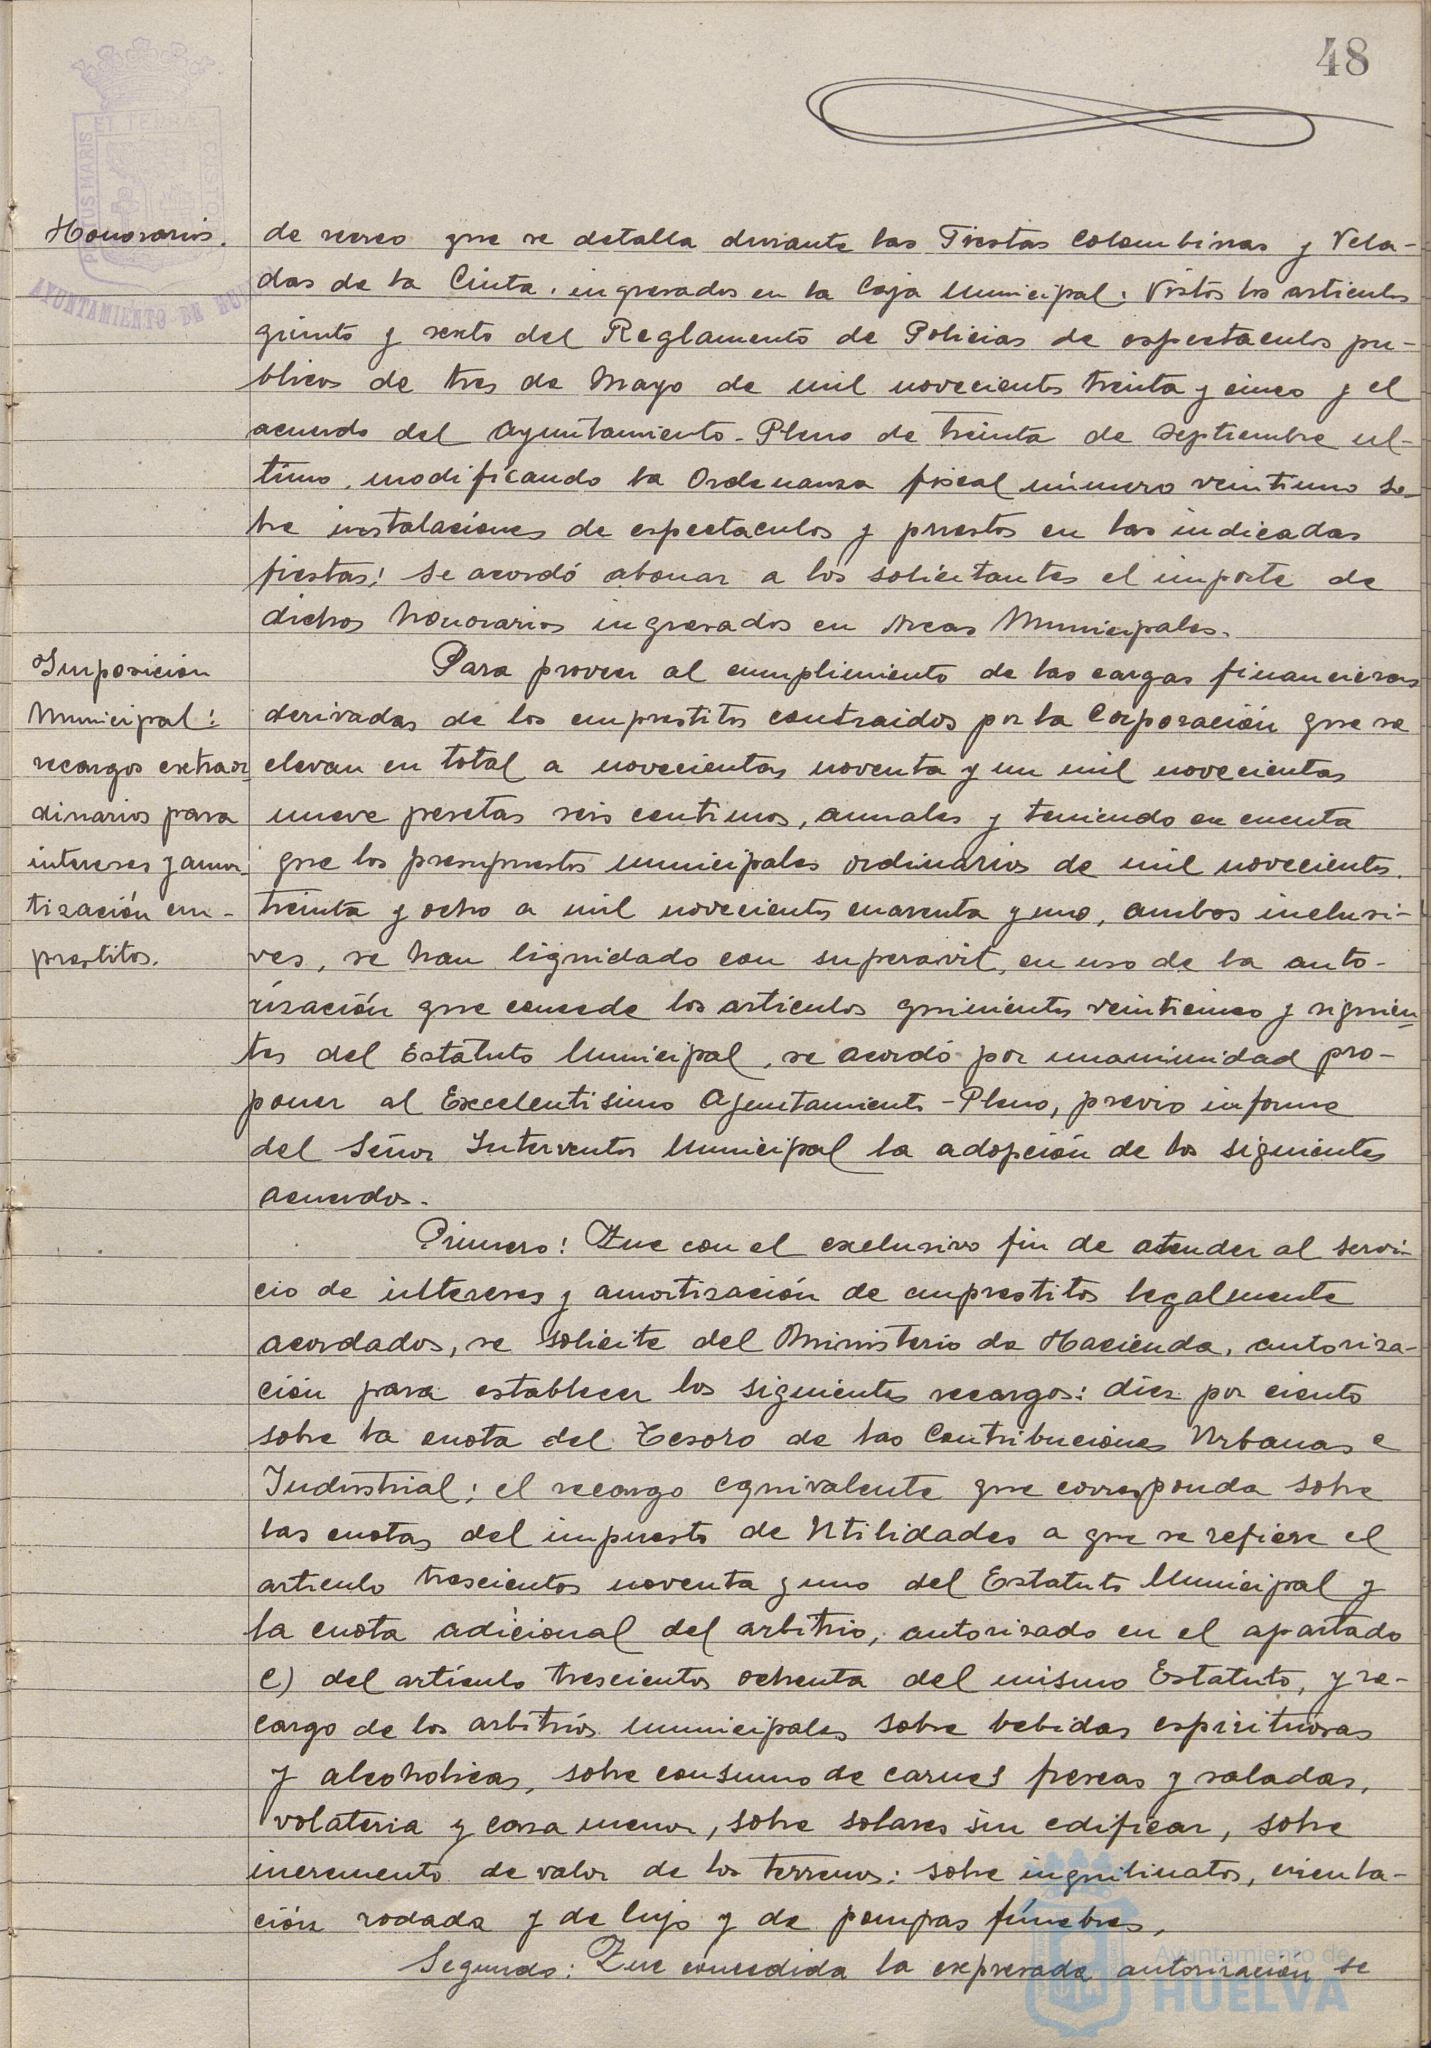 48
PORTUS MARIS ET TERRÆ CUSTO
AYUNTAMIENTO DE HU
Honorarios.
de recreo que se detalla durante las Fiestas Colombinas y Vela-
das de la Cinta, ingresados en la Caja Municipal; Vistos los articulos
quinto y sexto del Reglamento de Policias de espectaculos pu-
blicos de tres de Mayo de mil novecientos treinta y cinco y el
acuerdo del Ayuntamiento-Pleno de treinta de Septiembre ul-
timo, modificando la Ordenanza fiscal número veintiuno so-
bre instalaciones de espectaculos y puestos en las indicadas
fiestas; Se acordó abonar a los solicitantes el importe de
dichos honorarios ingresados en Arcas Municipales.
Imposición
Municipal:
recargos extraor
dinarios para
intereses y amor-
tización em-
prestitos.
Para proveer al cumplimiento de las cargas financieras
derivadas de los emprestitos contraidos por la Corporación que se
elevan en total a novecientas noventa y un mil novecientas
nueve pesetas seis centimos, anuales y teniendo en cuenta
que los presupuestos municipales ordinarios de mil novecientos
treinta y ocho a mil novecientos cuarenta y uno, ambos inclusi-
ves, se han liquidado con superavit, en uso de la auto-
rización que concede los articulos quinientos veinticinco y siguien-
tes del Estatuto Municipal, se acordó por unanimidad pro-
poner al Excelentisimo Ayuntamiento-Pleno, previo informe
del Señor Interventor Municipal la adopción de los siguientes
acuerdos.
Primero: Que con el exclusivo fin de atender al servi-
cio de intereses y amortización de emprestitos legalmente
acordados, se solicite del Ministerio de Hacienda, autoriza-
ción para establecer los siguientes recargos: diez por ciento
sobre la cuota del Tesoro de las Contribuciones Urbanas e
Industrial; el recargo equivalente que corresponda sobre
las cuotas del impuesto de Utilidades a que se refiere el
articulo trescientos noventa y uno del Estatuto Municipal y
la cuota adicional del arbitrio, autorizado en el apartado
C) del artículo trescientos ochenta del mismo Estatuto, y re-
cargo de los arbitrios municipales sobre bebidas espirituosas
y alcoholicas, sobre consumo de carnes frescas y saladas,
volateria y caza menor, sobre solares sin edificar, sobre
incremento de valor de los terrenos; sobre inquilinatos, circula-
ción rodada y de lujo y de pompas fúnebres,
Segundo: Que concedida la expresada autorización se
Ayuntamiento de
HUELVA